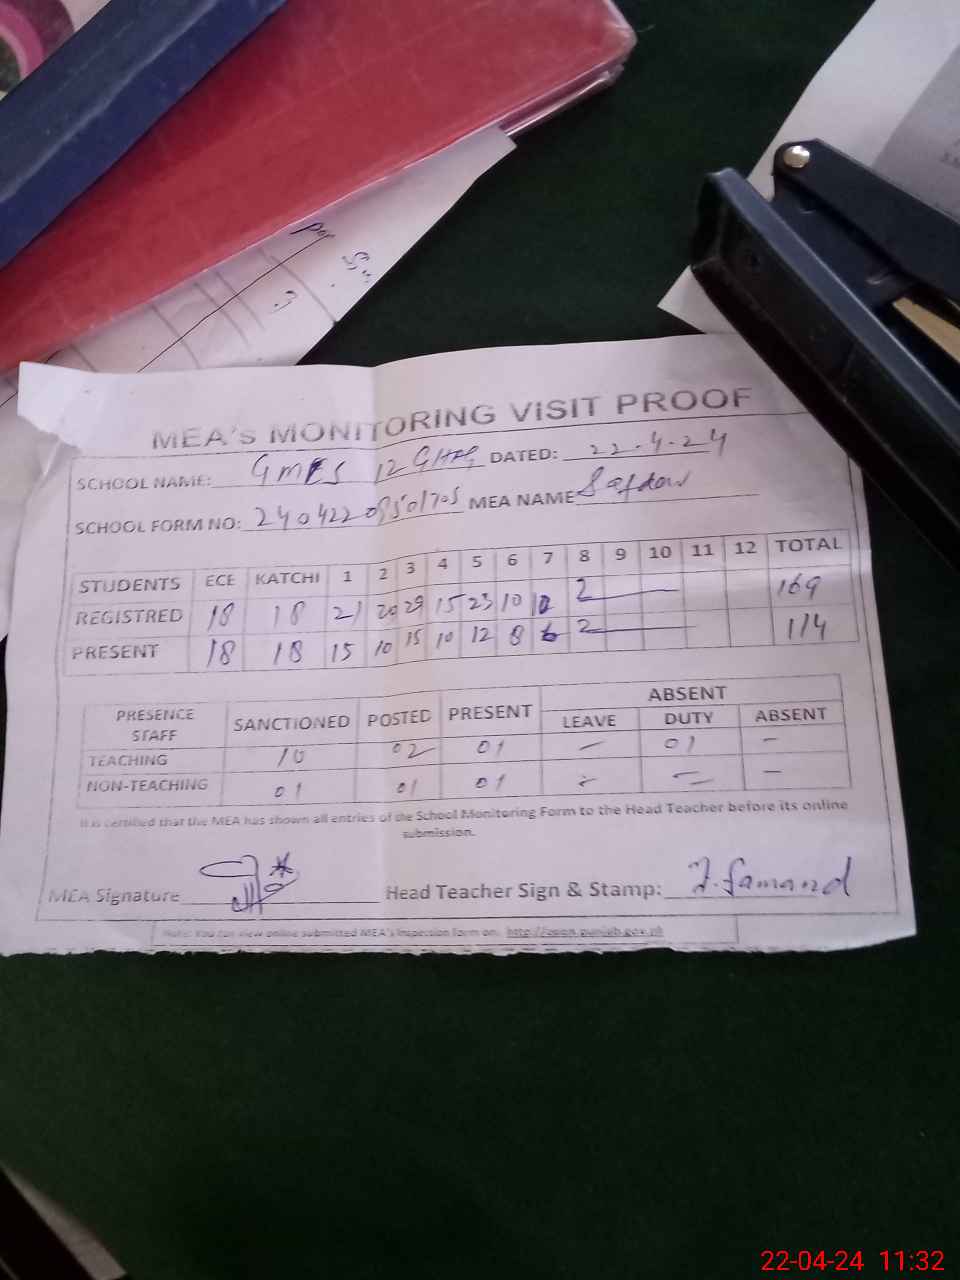 por
MEA's MONITORING ViSIT PROOF
SCHOOL NAME: GMES 12 GHAG DATED: 22.4.24
SCHOOL FORM NO: MEA NAME Safdar
STUDENTS ECE KATCHI 1 2 3 4 5 6 7 8 9 10 11 12 TOTAL
REGISTRED 18 18 21 20 29 15 23 10 2 169
PRESENT 18 18 15 10 15 10 12 8 6 2 114
PRESENCE STAFF SANCTIONED POSTED PRESENT ABSENT
LEAVE DUTY ABSENT
TEACHING 10 02 01 – 01 –
NON-TEACHING 01 01 01 – – –
It is certified that the MEA has shown all entries of the School Monitoring Form to the Head Teacher before its online
submission.
MEA Signature Head Teacher Sign & Stamp: Z. Samand
Note: You can view online submitted MEA's Inspection form on. http://open.punjab.gov.pk
22-04-24 11:32